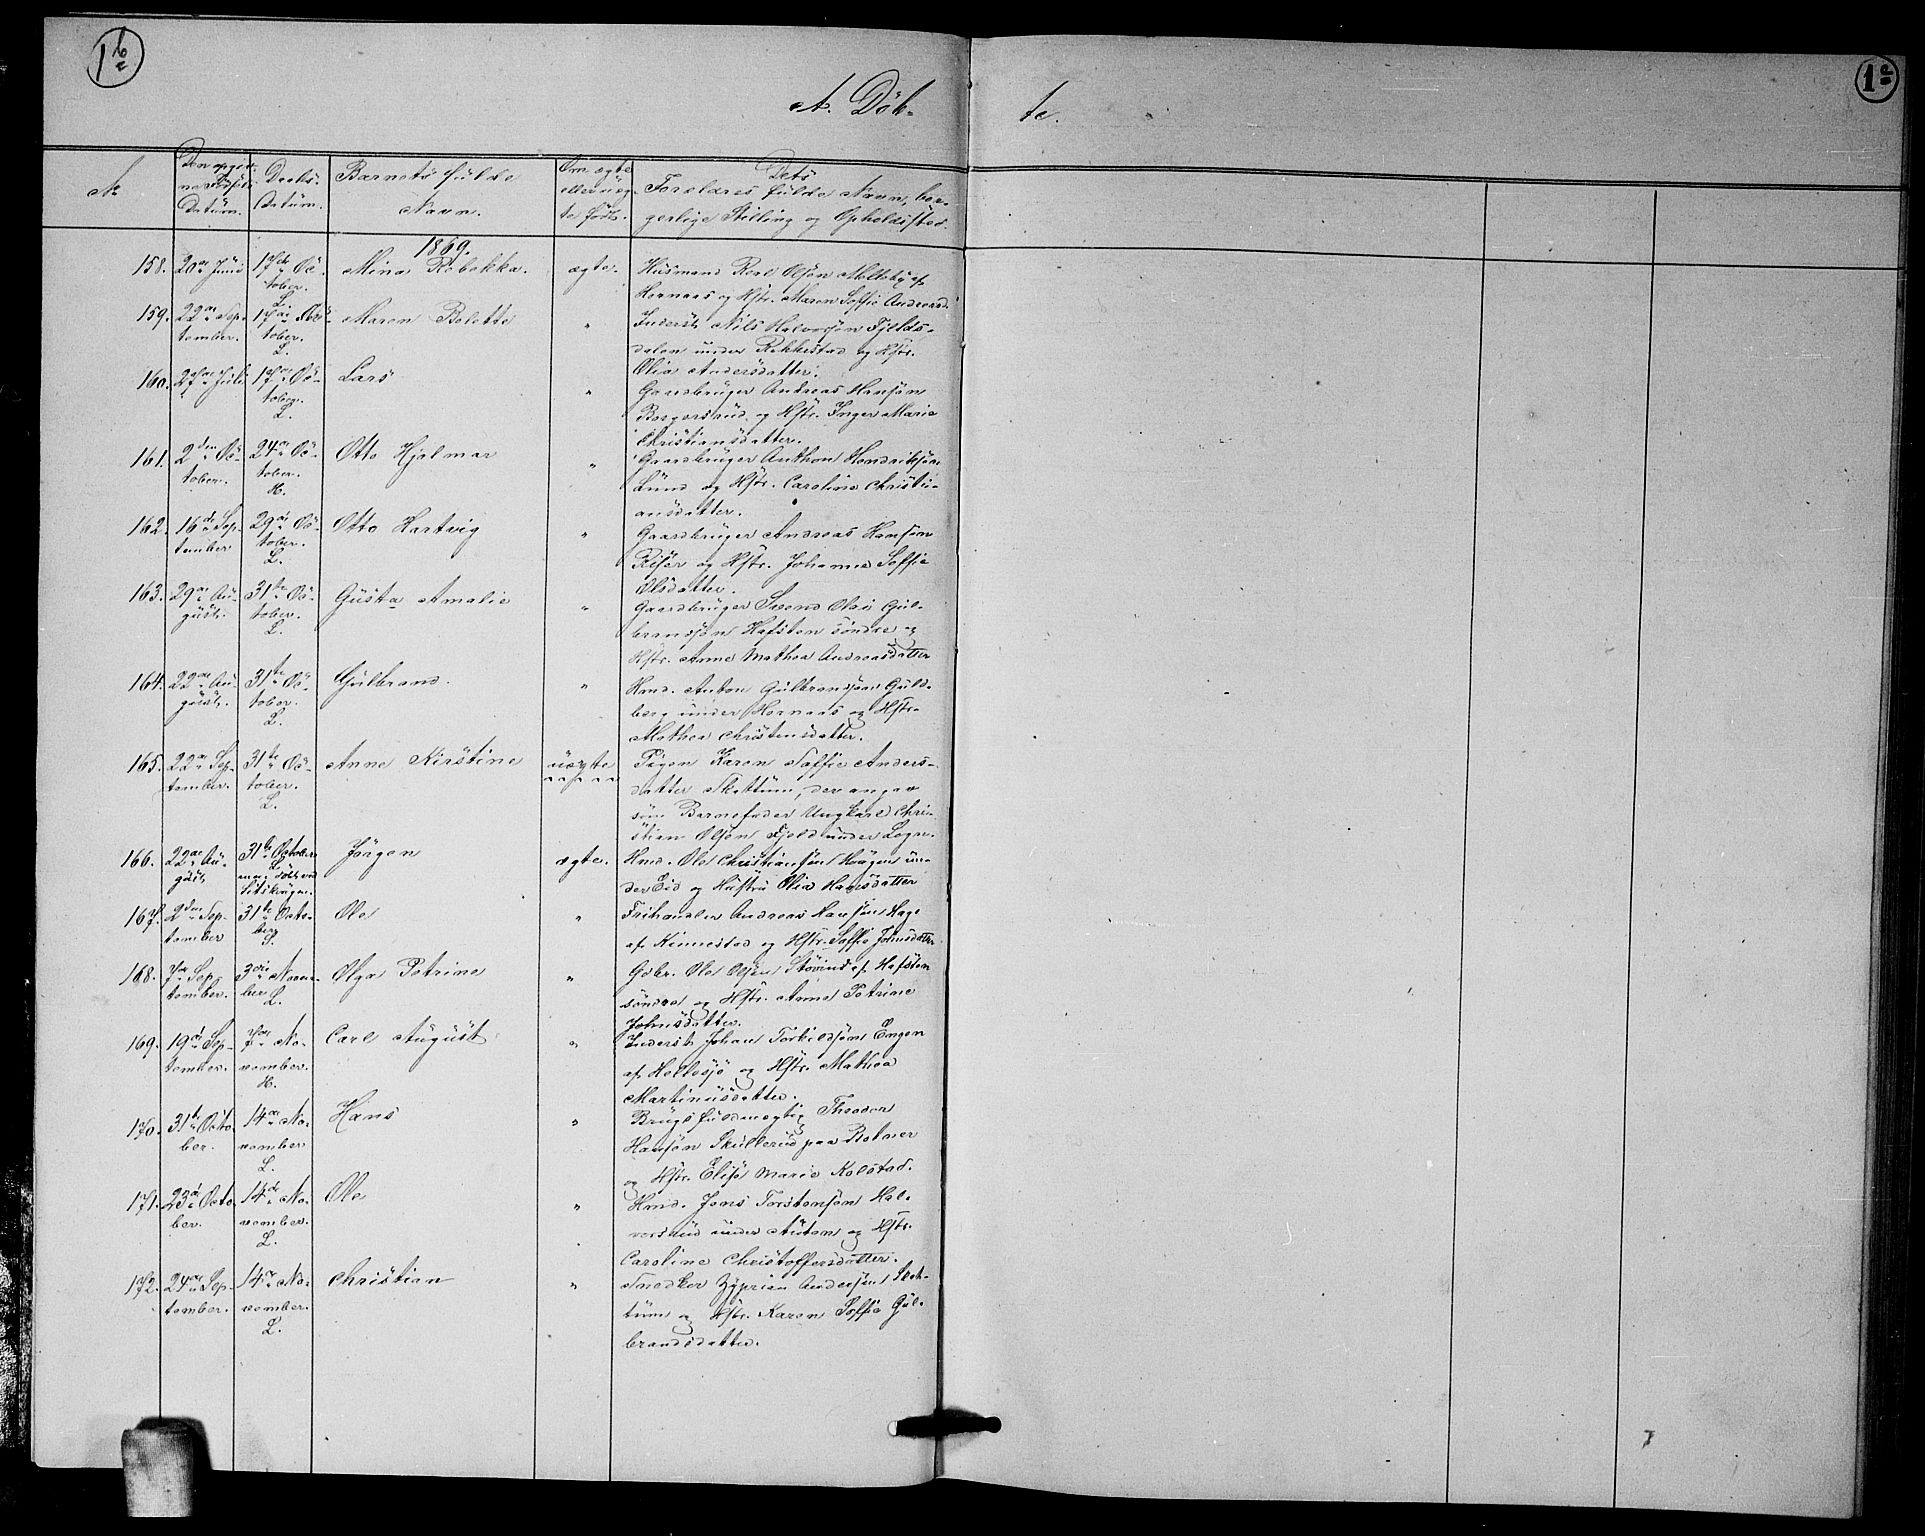 1b
1c
A. Döb-
te.
No
Den opgiv-
ne Födsels-
Datüm.
Daabs-
Datüm.
Barnets fülde
Navn.
Om ægte
eller uæg-
te född.
Dets
Forældres fülde Navn, bor-
gerlige Stilling og Opholdssted.
1869.
158. 20de Juni 17de Oc-
tober.
L.
Mina Rebekka. ægte.
Hüsmand Olsön af
Hornaas og Hstr. Maren Soffie Andersd.
159. 22de Sep-
tember.
17de Oc-
tober.
L.
Maren Bolette "
Inderst Nils Halvorsön Fjelds-
dalen under Rakkestad og Hstr.
Olia Andersdatter.
160. 27de Juli 17de Oc-
tober.
L.
Lars "
Gaardbrüger Andreas Hansön
Borgersrüd og Hstr. Inger Marie
Christiansdatter.
161. 2den Oc-
tober.
24de Oc-
tober.
H.
Otto Hjalmar "
Gaardbrüger Anthon Hendriksön
Lünd og Hstr. Caroline Christi-
ansdatter.
162. 16de Sep-
tember
29de Oc-
tober.
L.
Otto Hartvig "
Gaardbrüger Andreas Hansön
Risör og Hstr. Johanne Soffie
Olsdatter.
163. 29de Aü-
güst.
31te Oc-
tober.
L.
Güsta Amalie "
Gaardbrüger Svend Olai Gül-
bransön Hafsten söndre og
Hstr. Anne Mathea Andreasdatter
164. 22de Aü-
güst.
31te Oc-
tober.
L.
Gülbrand. "
Hmd. Anton Gülbrandsön Güld-
berg under Hornaas og Hstr.
Mathea Christensdatter.
165. 22de Sep-
tember.
31te Oc-
tober.
L.
Anne Kirstine üægte
Pigen Karen Soffie Anders-
datter Skattüm, der angav
som Barnefader Ungkarl Chri-
stian Olsön Fjeld under Logne.
166. 22de Aü-
güst
31te October
L.
Jörgen ægte.
Hmd. Ole Christiansön Haugen un-
der Eid og Hüstrü Olia Hansdatter
167. 2den Sep-
tember
31te Octo-
ber
S.
Ole "
Frihandler Andreas Hansön Hage
af Kinnestad og Hstr. Soffie Johnsdatter
168. 7de Sep-
tember.
3die Novem-
ber
L.
Olga Petrine "
Gdbr. Ole Olsön Stövind af Hafsten
söndre og Hstr. Anne Petrine
Johnsdatter.
169. 19de Sep-
tember.
7de No-
vember.
H.
Carl Aügüst "
Inderst Johan Torkildsön Engen
af Hellesjö og Hstr. Mathea
Martinüsdatter.
170. 31te Octo-
ber.
14de No-
vember
L.
Hans "
Brügsfüldmægtig Theodor
Hansön Skullerüd paa Botner
og Hstr. Elise Marie Kolstad.
171. 23de Octo-
ber.
14de No-
vember.
L.
Ole "
Hmd. Jens Torstensön Hal-
vorsrüd ünder Aüten og Hstr.
Caroline Christoffersdatter.
172. 24de Sep-
tember.
14de No-
vember.
L.
Christian "
Snedker Zyprian Andersön Skat-
tüm og Hstr. Karen Soffie Gül-
brandsdatter.